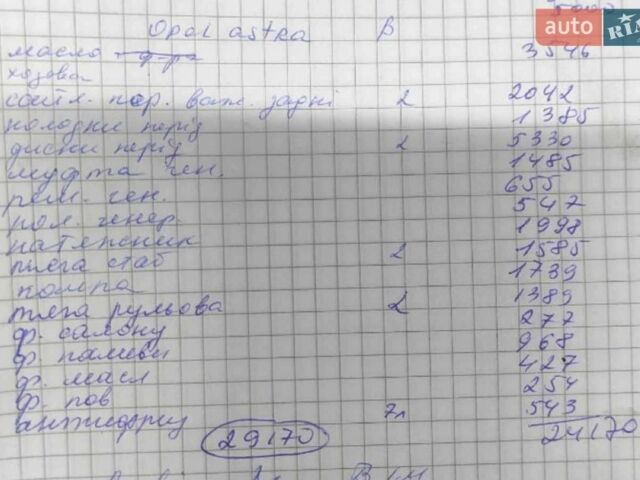 5000
auto RIA
Opal astra В
масло ф-ра 3546
ходова
сайл. пер. важ. задні 2 2042
колодки перід 1385
диски перід 2 5330
муфта ген. 1485
рем. ген. 655
пол. генер. 547
натяжник 1998
тяга стаб 2 1585
помпа 1739
тяга рульова 2 1389
ф. салону 277
ф. паливн 968
ф. масл 427
ф. пов 254
антифриз 7л 543
29170 24170